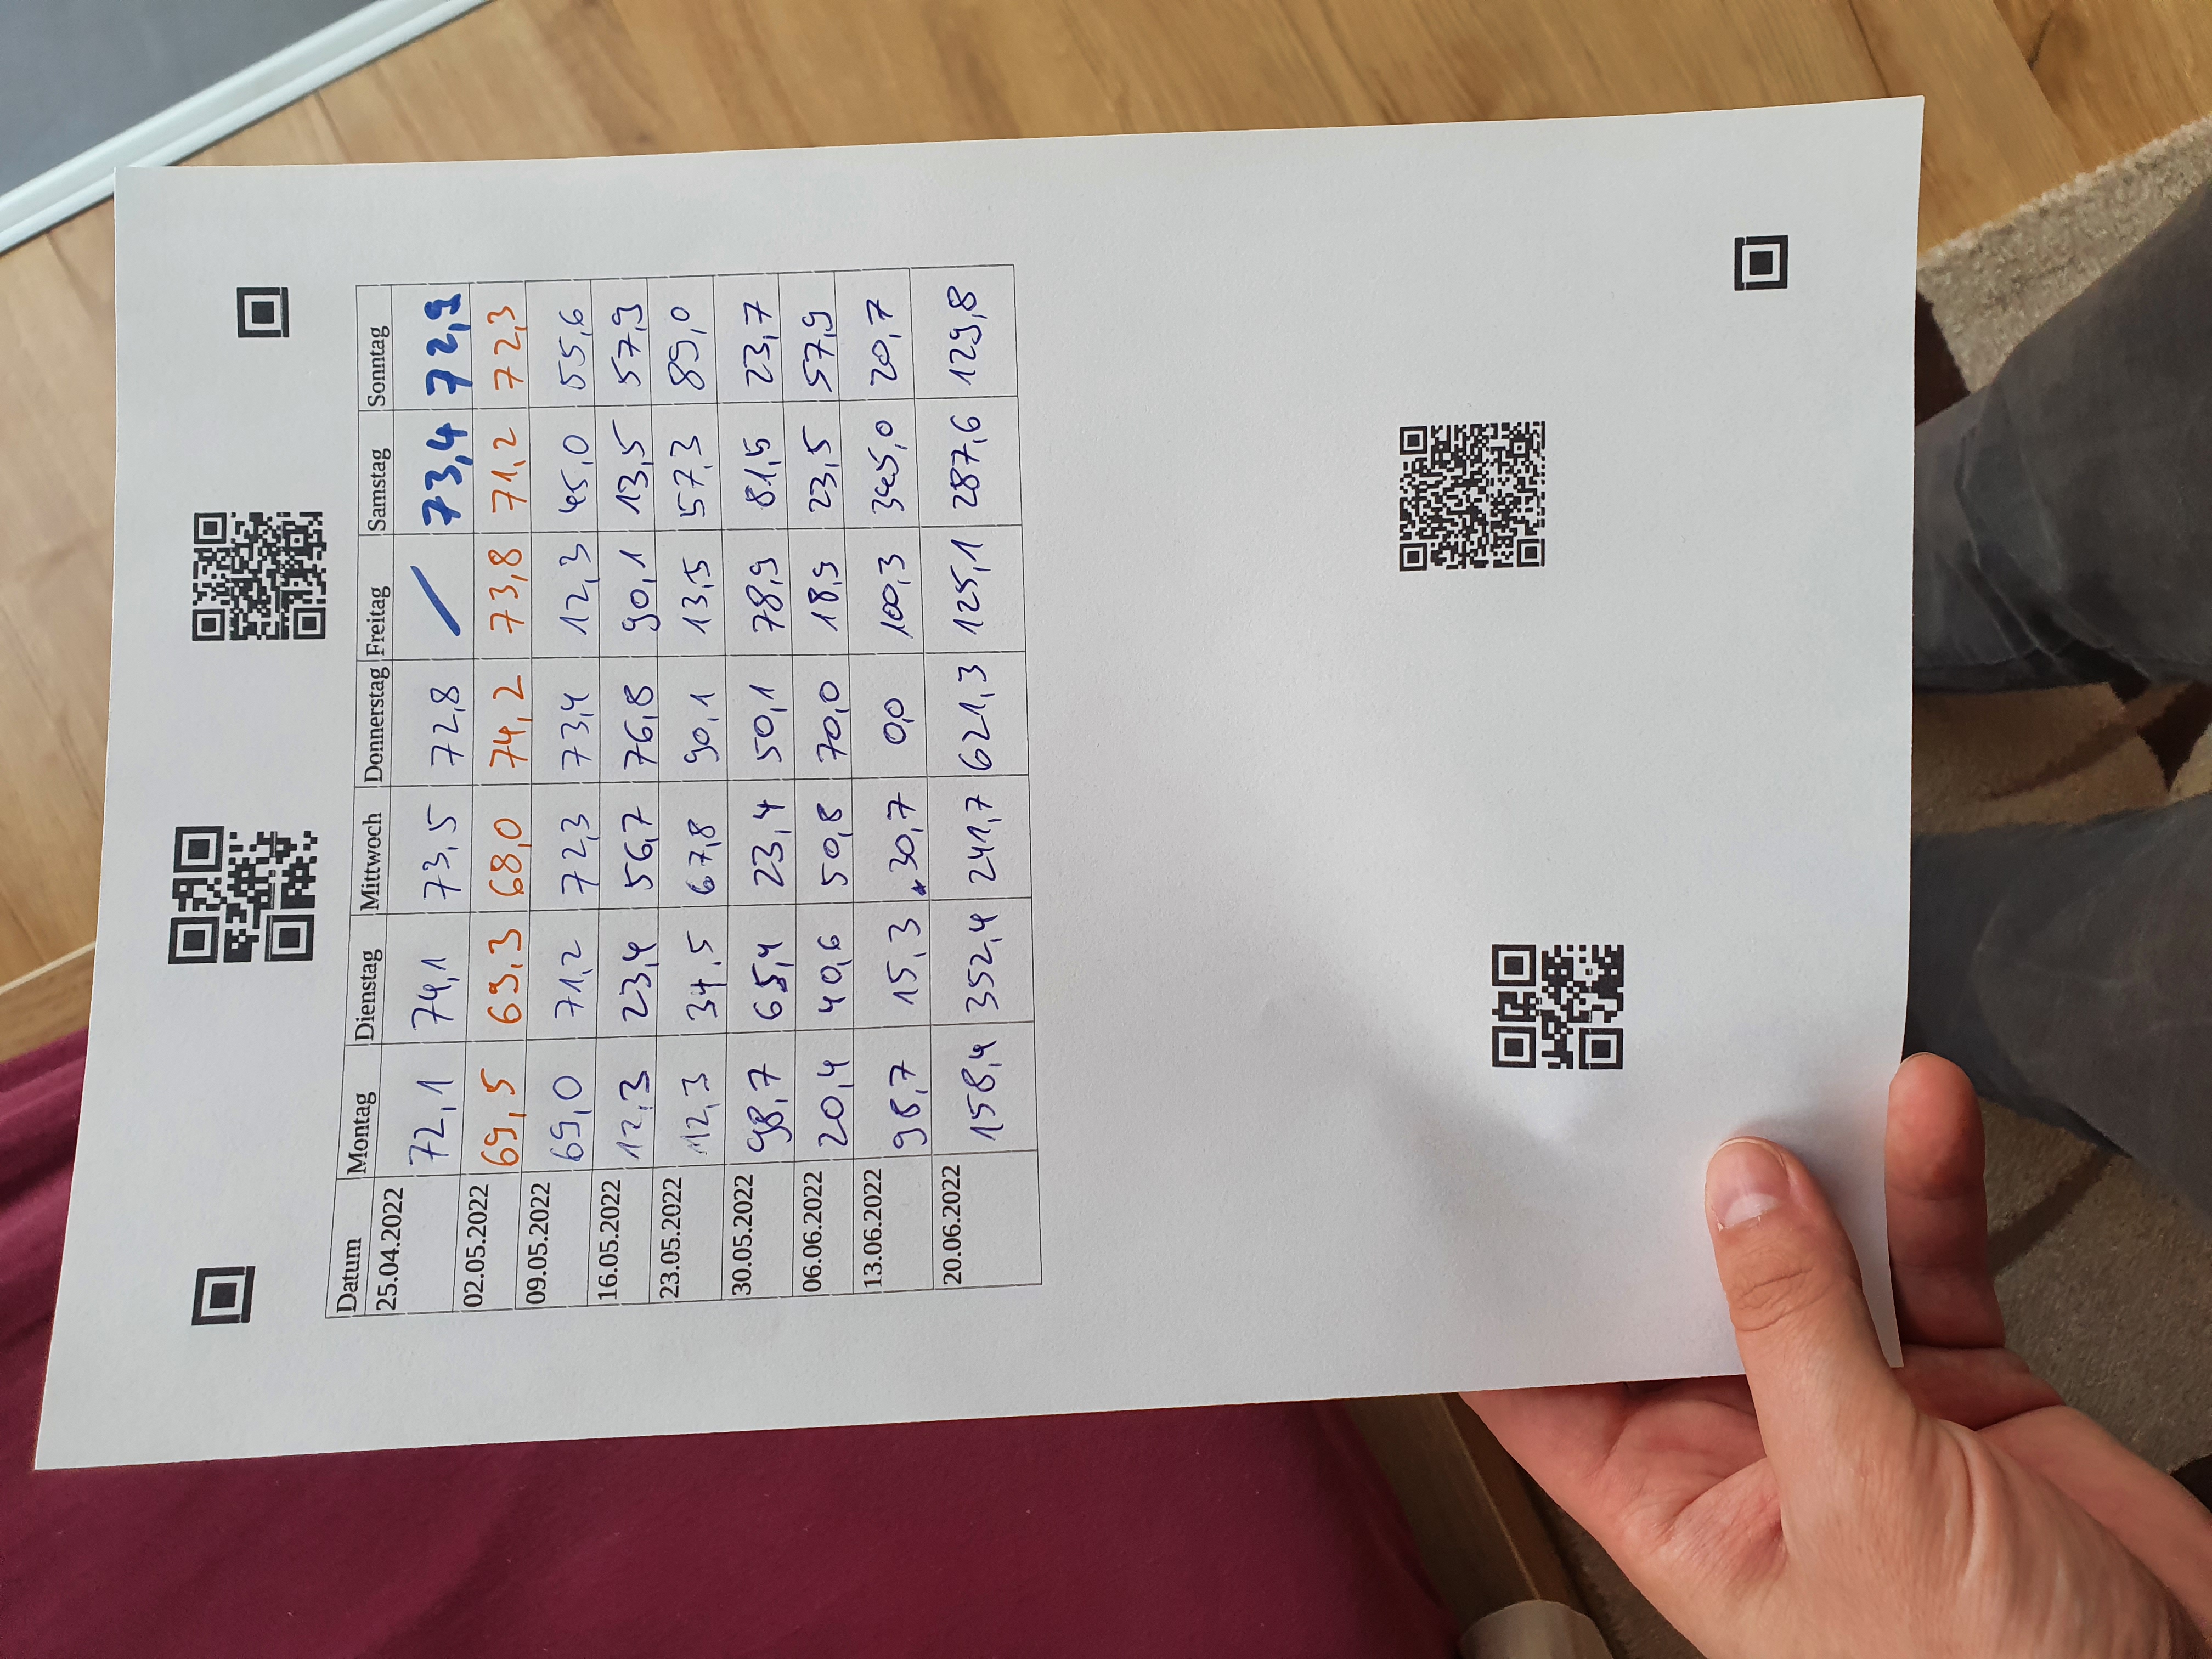 Datum Montag Dienstag Mittwoch Donnerstag Freitag Samstag Sonntag
25.04.2022 72,1 74,1 73,5 72,8 / 73,4 72,9
02.05.2022 69,5 69,3 68,0 74,2 73,8 71,2 72,3
09.05.2022 69,0 71,2 72,3 73,4 12,3 45,0 55,6
16.05.2022 12,3 23,4 56,7 76,8 90,1 13,5 57,9
23.05.2022 12,3 34,5 67,8 90,1 13,5 57,3 89,0
30.05.2022 98,7 65,4 23,4 50,1 78,9 81,5 23,7
06.06.2022 20,4 40,6 50,8 70,0 18,9 23,5 57,9
13.06.2022 98,7 15,3 30,7 0,0 100,3 345,0 20,7
20.06.2022 158,4 352,4 241,7 621,3 125,1 287,6 129,8